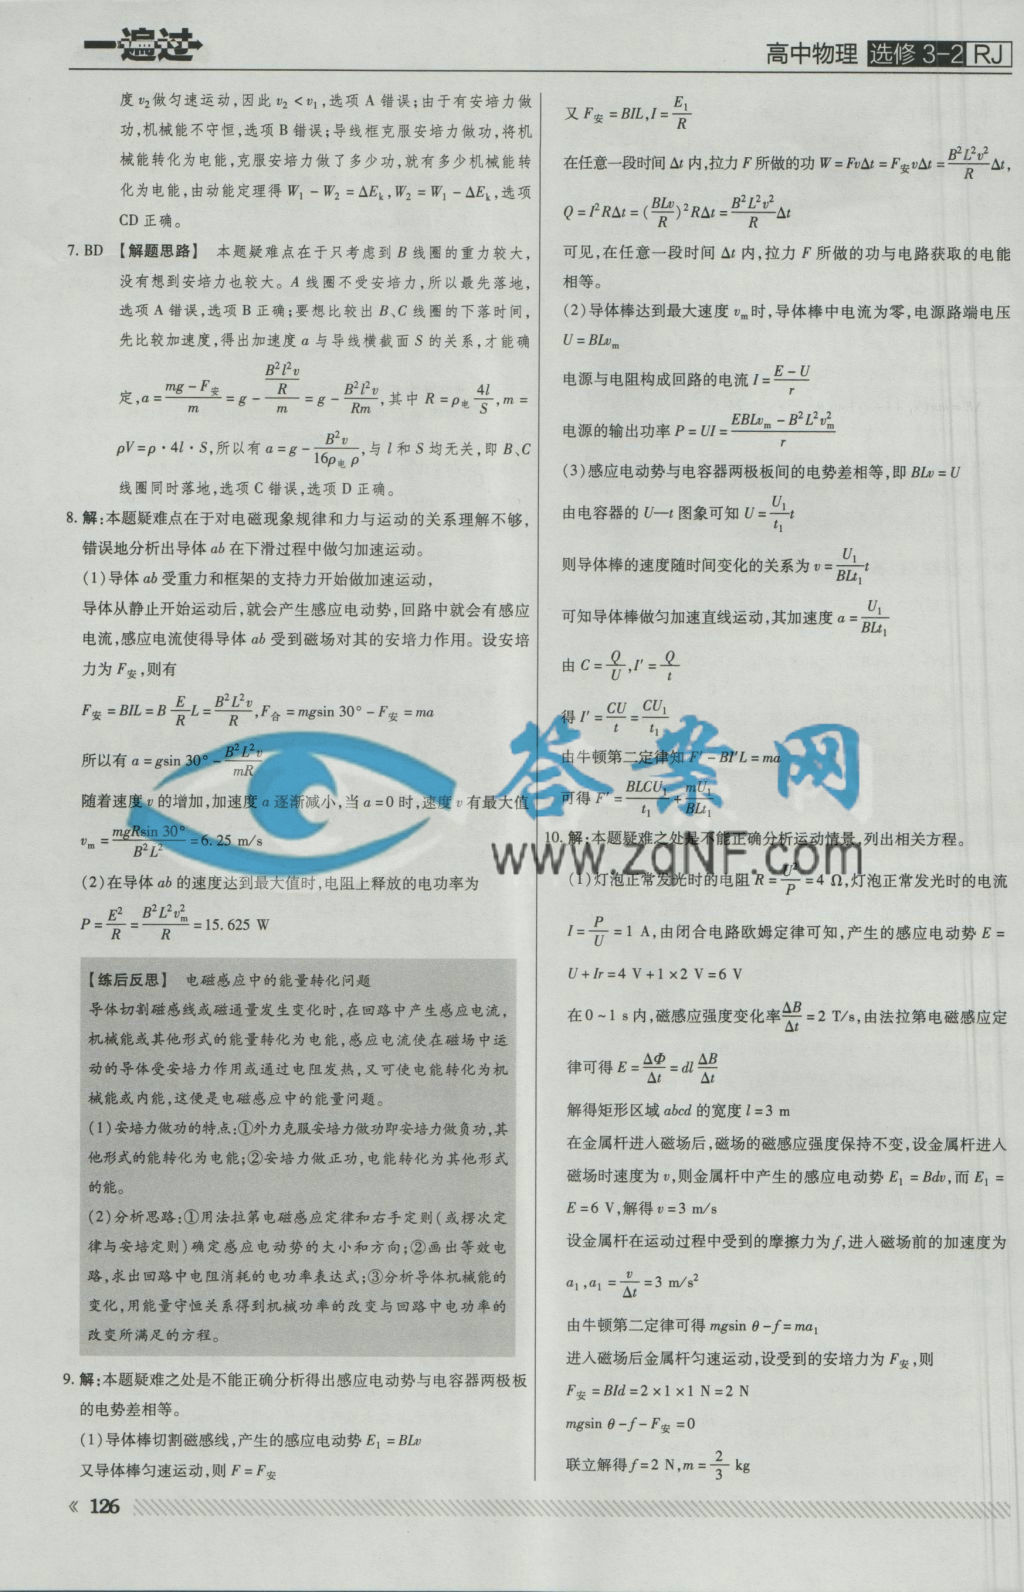 一遍过
高中物理 选修3-2 RJ
度v₂做匀速运动,因此v₂<v₁,选项A错误;由于有安培力做
功,机械能不守恒,选项B错误;导线框克服安培力做功,将机
械能转化为电能,克服安培力做了多少功,就有多少机械能转
化为电能,由动能定理得W₁-W₂=ΔEₖ,W₂=W₁-ΔEₖ,选项
CD正确。
7. BD 【解题思路】 本题疑难点在于只考虑到B线圈的重力较大,
没有想到安培力也较大。A线圈不受安培力,所以最先落地,
选项A错误,选项B正确;要想比较出B、C线圈的下落时间,
先比较加速度,得出加速度a与导线横截面S的关系,才能确
定,a=(mg-F安)/m=g-(B²l²v/R)/m=g-B²l²v/Rm,其中R=ρ电 4l/S,m=
ρV=ρ·4l·S,所以有a=g-B²v/16ρ电ρ,与l和S均无关,即B、C
线圈同时落地,选项C错误,选项D正确。
8. 解:本题疑难点在于对电磁现象规律和力与运动的关系理解不够,
错误地分析出导体ab在下滑过程中做匀加速运动。
(1)导体ab受重力和框架的支持力开始做加速运动,
导体从静止开始运动后,就会产生感应电动势,回路中就会有感应
电流,感应电流使得导体ab受到磁场对其的安培力作用。设安培
力为F安,则有
F安=BIL=B E/R L=B²L²v/R,F合=mgsin 30°-F安=ma
所以有a=gsin 30°-B²L²v/mR
随着速度v的增加,加速度a逐渐减小,当a=0时,速度v有最大值
vₘ=mgRsin 30°/B²L²=6.25 m/s
(2)在导体ab的速度达到最大值时,电阻上释放的电功率为
P=E²/R=B²L²vₘ²/R=15.625 W
【练后反思】 电磁感应中的能量转化问题
导体切割磁感线或磁通量发生变化时,在回路中产生感应电流,
机械能或其他形式的能量转化为电能,感应电流使在磁场中运
动的导体受安培力作用或通过电阻发热,又可使电能转化为机
械能或内能,这便是电磁感应中的能量问题。
(1)安培力做功的特点:①外力克服安培力做功即安培力做负功,其
他形式的能转化为电能;②安培力做正功,电能转化为其他形式
的能。
(2)分析思路:①用法拉第电磁感应定律和右手定则(或楞次定
律与安培定则)确定感应电动势的大小和方向;②画出等效电
路,求出回路中电阻消耗的电功率表达式;③分析导体机械能的
变化,用能量守恒关系得到机械功率的改变与回路中电功率的
改变所满足的方程。
9. 解:本题疑难之处是不能正确分析得出感应电动势与电容器两极板
的电势差相等。
(1)导体棒切割磁感线,产生的感应电动势E₁=BLv
又导体棒匀速运动,则F=F安
又F安=BIL,I=E₁/R
在任意一段时间Δt内,拉力F所做的功W=FvΔt=F安vΔt=B²L²v²/R Δt,
Q=I²RΔt=(BLv/R)²RΔt=B²L²v²/R Δt
可见,在任意一段时间Δt内,拉力F所做的功与电路获取的电能
相等。
(2)导体棒达到最大速度vₘ时,导体棒中电流为零,电源路端电压
U=BLvₘ
电源与电阻构成回路的电流I=(E-U)/r
电源的输出功率P=UI=(EBLvₘ-B²L²vₘ²)/r
(3)感应电动势与电容器两极板间的电势差相等,即BLv=U
由电容器的U—t图象可知U=U₁/t₁ t
则导体棒的速度随时间变化的关系为v=U₁/BLt₁ t
可知导体棒做匀加速直线运动,其加速度a=U₁/BLt₁
由C=Q/U,I′=Q/t
得I′=CU/t=CU₁/t₁
由牛顿第二定律知F′-BI′L=ma
可得F′=BLCU₁/t₁+mU₁/BLt₁
10. 解:本题疑难之处是不能正确分析运动情景,列出相关方程。
(1)灯泡正常发光时的电阻R=U²/P=4 Ω,灯泡正常发光时的电流
I=P/U=1 A,由闭合电路欧姆定律可知,产生的感应电动势E=
U+Ir=4 V+1×2 V=6 V
在0~1 s内,磁感应强度变化率ΔB/Δt=2 T/s,由法拉第电磁感应定
律可得E=ΔΦ/Δt=dl ΔB/Δt
解得矩形区域abcd的宽度l=3 m
在金属杆进入磁场后,磁场的磁感应强度保持不变,设金属杆进入
磁场时速度为v,则金属杆中产生的感应电动势E₁=Bdv,而E₁=
E=6 V,解得v=3 m/s
设金属杆在运动过程中受到的摩擦力为f,进入磁场前的加速度为
a₁,a₁=v/Δt=3 m/s²
由牛顿第二定律可得mgsin θ-f=ma₁
进入磁场后金属杆匀速运动,设受到的安培力为F安,则
F安=BId=2×1×1 N=2 N
mgsin θ-f-F安=0
联立解得f=2 N,m=2/3 kg
答案网
www.zqNF.com
« 126